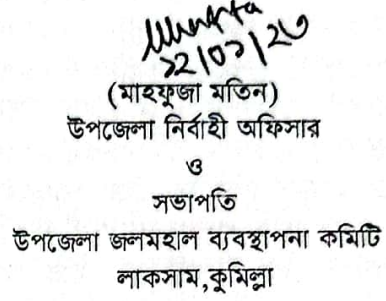 ২২/০১/২৩
(মাহফুজা মতিন)
উপজেলা নির্বাহী অফিসার
ও
সভাপতি
উপজেলা জলমহাল ব্যবস্থাপনা কমিটি
লাকসাম,কুমিল্লা